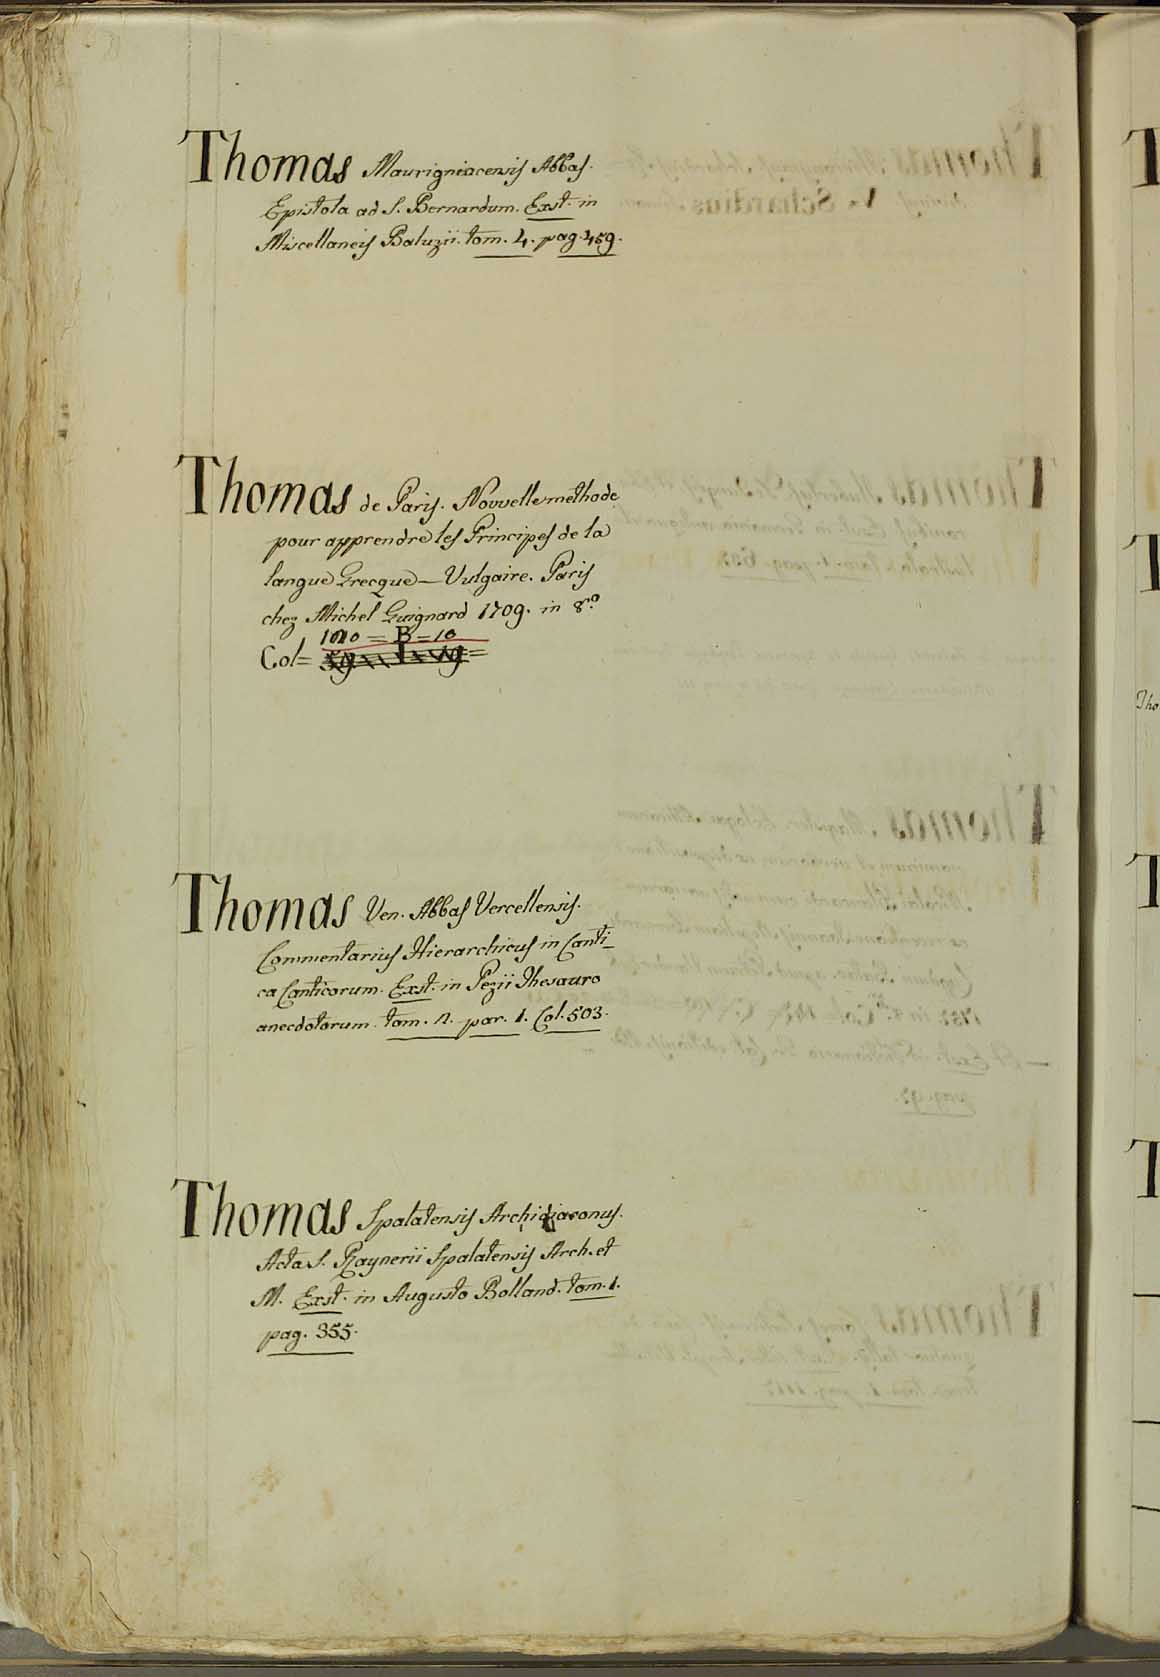 Thomas Maurigniacensis Abbas.
Epistola ad S. Bernardum. Exst. in
Miscellaneis Baluzii. tom. 4. pag. 459.
Thomas de Paris. Nouvelle methode
pour apprendre les Principes de la
langue Grecque—Vulgaire. Paris
chez Michel Guignard 1709. in 8.º
1010 = B = 10
Col=
Thomas Ven. Abbas Vercellensis.
Commentarius Hierarchicus in Canti-
ca Canticorum. Exst. in Pezii Thesauro
anecdotorum. tom. 2. par. 1. Col. 503.
Thomas Spalatensis Archidiaconus.
Acta S. Raynerii Spalatensis Arch. et
M. Exst. in Augusto Bolland. tom. 1.
pag. 355.
Tho